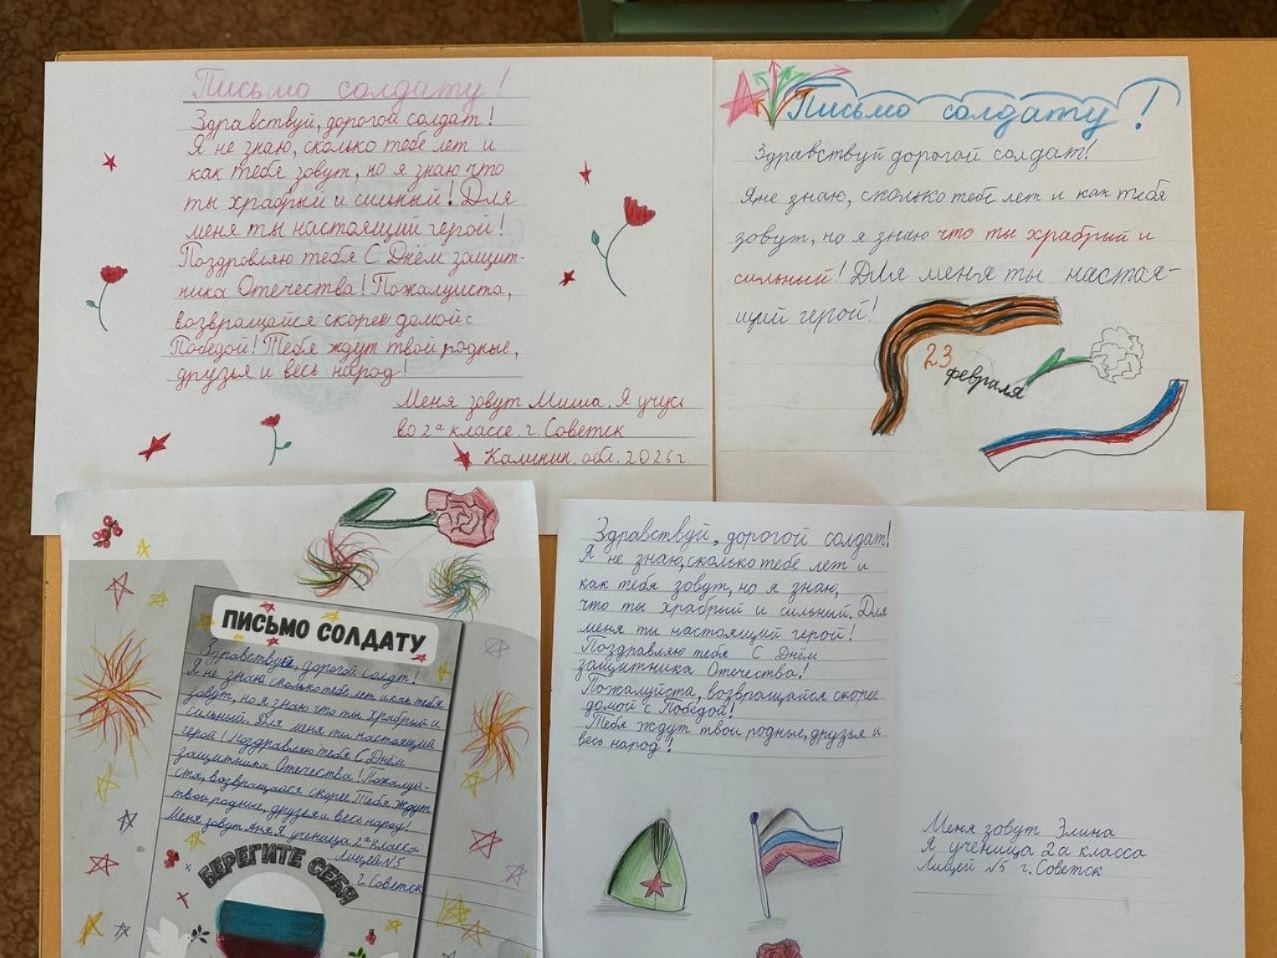 Письмо солдату!
Здравствуй, дорогой солдат!
Я не знаю, сколько тебе лет и
как тебя зовут, но я знаю что
ты храбрый и сильный! Для
меня ты настоящий герой!
Поздровляю тебя С Днём защит-
ника Отечества! Пожалуиста,
возвращайся скорее домой с
Победой! Тебя ждут твой родные,
друзья и весь народ!
Меня зовут Миша. Я учусь
во 2а классе. г. Советск
Калинин. обл. 2026 г.
Письмо солдату!
Здравствуй дорогой солдат!
Я не знаю, сколько тебе лет и как тебя
зовут, но я знаю что ты храбрый и
сильный! Для меня ты настоя-
щий герой!
23
февраля
ПИСЬМО СОЛДАТУ
Здравствуй, дорогой солдт!
Я не знаю сколько тебе лет и как тебя
зовут, но я знаю что ты храбрый и
сильный. Для меня ты настоящий
герой! Поздравляю тебя С Днём
защитника Отечества! Пожалуй-
ста, возвращайся скорее Тебя ждут
твои родные, друзья и весь народ!
Меня зовут Аня Я ученица 2а класса
Лицей №5
г. Советск
БЕРЕГИТЕ СЕБЯ
Здравствуй, дорогой солдат!
Я не знаю, сколько тебе лет и
как тебя зовут, но я знаю,
что ты храбрый и сильный. Для
меня ты настоящий герой!
Поздравляю тебя С Днём
защитника Отечества!
Пожалуйста, возвращайся скорее
домой с Победой!
Тебя ждут твои родные, друзья и
весь народ!
Меня зовут Элина
Я ученица 2а класса
Лицей №5 г. Советск